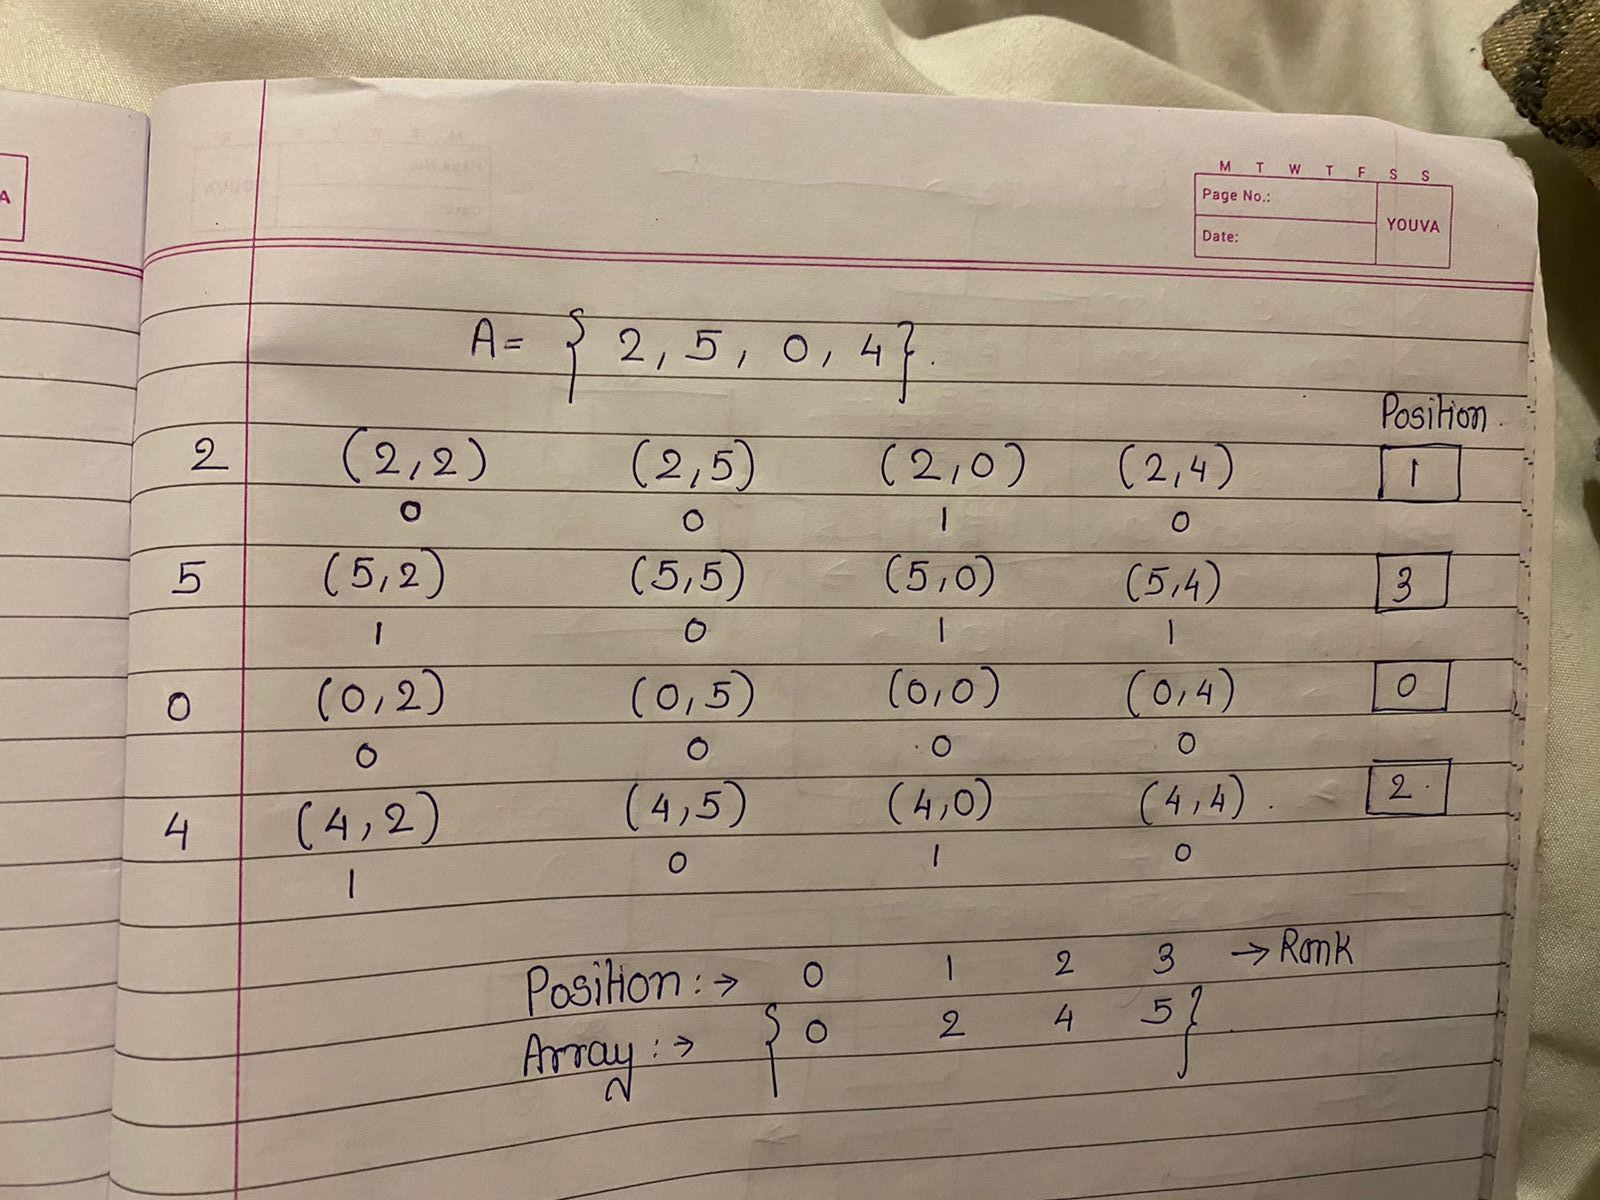 A
M T W T F S S
Page No.:
YOUVA
Date:
A = { 2, 5, 0, 4}.
Position.
2 (2,2) (2,5) (2,0) (2,4) 1
0 0 1 0
5 (5,2) (5,5) (5,0) (5,4) 3
1 0 1 1
0 (0,2) (0,5) (0,0) (0,4) 0
0 0 0 0
4 (4,2) (4,5) (4,0) (4,4). 2.
1 0 1 0
Position :→ 0 1 2 3 → Rank
Array :→ { 0 2 4 5 }